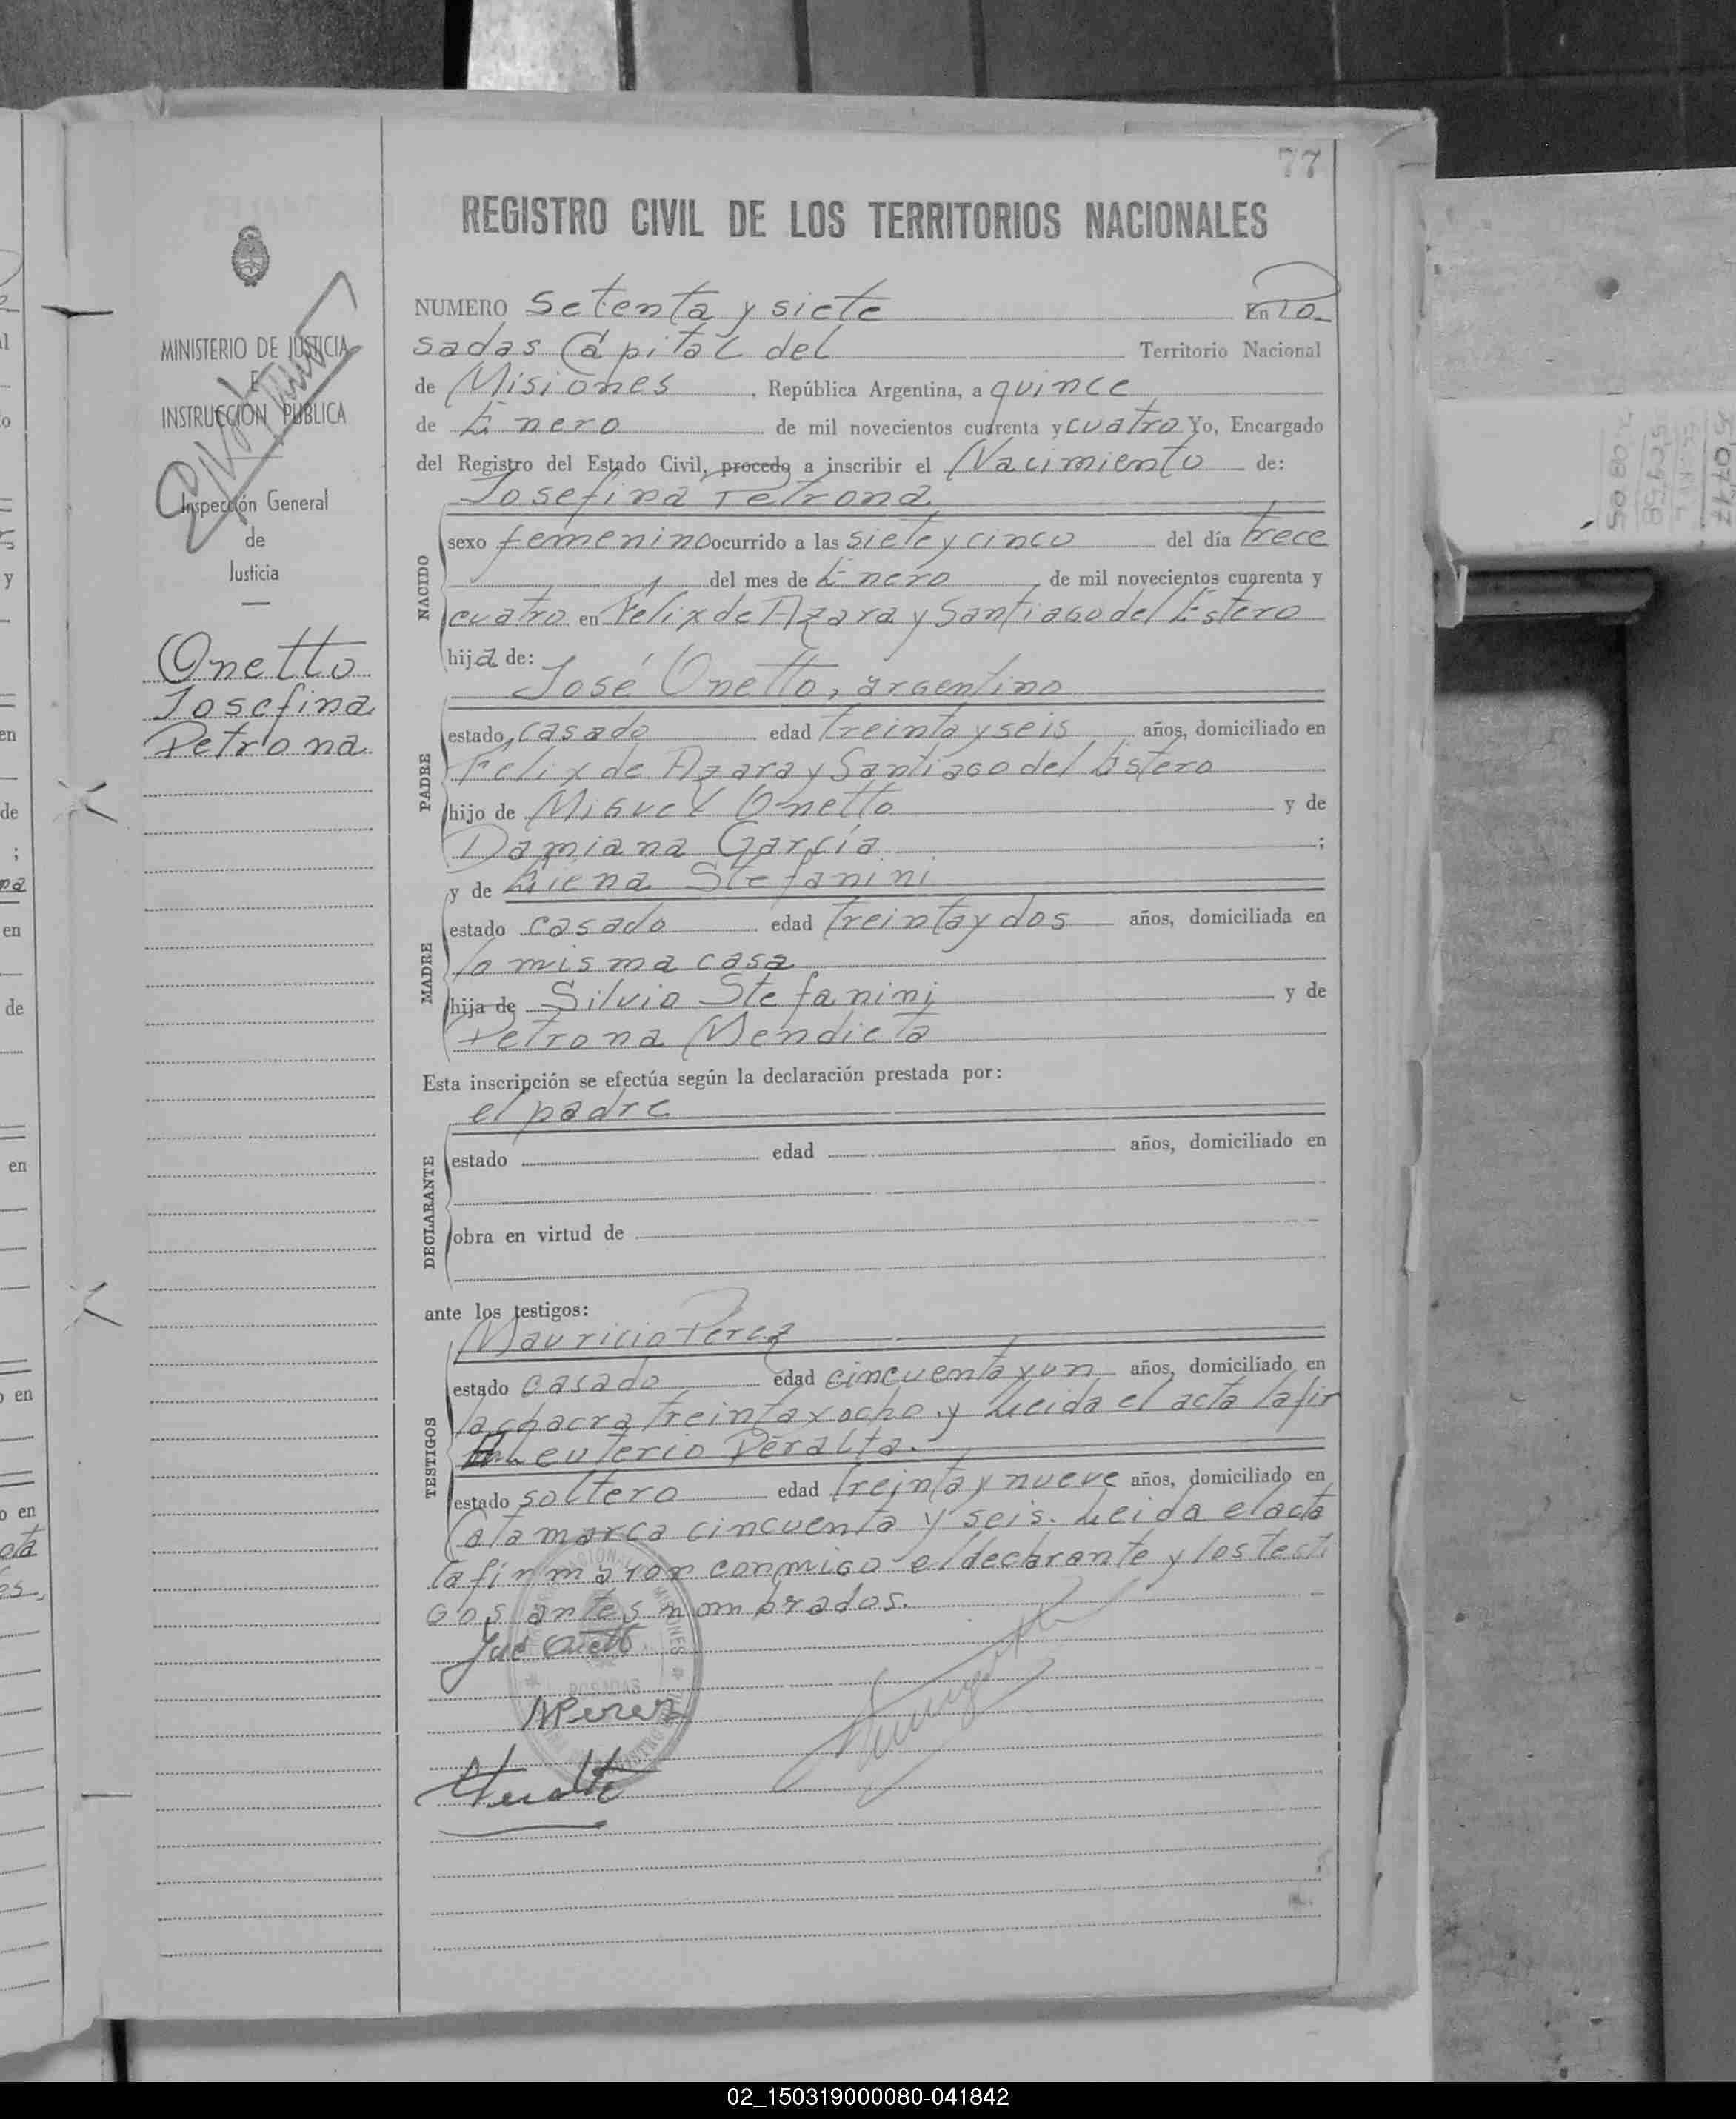 77
REGISTRO CIVIL DE LOS TERRITORIOS NACIONALES
MINISTERIO DE JUSTICIA
E
INSTRUCCIÓN PÚBLICA
Inspección General
de
Justicia
Onetto
Josefina
Petrona
NUMERO Setenta y siete En Po_
sadas Capital del Territorio Nacional
de Misiones, República Argentina, a quince
de Enero de mil novecientos cuarenta y cuatro Yo, Encargado
del Registro del Estado Civil, procedo a inscribir el Nacimiento de:
Josefina Petrona
NACIDO
sexo femenino ocurrido a las siete y cinco del día trece
del mes de Enero de mil novecientos cuarenta y
cuatro en Félix de Azara y Santiago del Estero
hija de:
José Onetto, argentino
PADRE
estado casado edad treinta y seis años, domiciliado en
Felix de Azara y Santiago del Estero
hijo de Miguel Onetto y de
Damiana García ;
y de Elena Stefanini
MADRE
estado casado edad treinta y dos años, domiciliada en
la misma casa
hija de Silvio Stefanini y de
Petrona Mendieta
Esta inscripción se efectúa según la declaración prestada por:
el padre
DECLARANTE
estado edad años, domiciliado en
obra en virtud de
ante los testigos:
Mauricio Perez
TESTIGOS
estado casado edad cincuenta y un años, domiciliado en
la chacra treinta y ocho. y Leida el acta la fir
Eleuterio Peralta.
estado soltero edad treinta y nueve años, domiciliado en
Catamarca cincuenta y seis. Leida el acta
la firmaron conmigo el declarante y los testi
gos antes nombrados.
José Onetto
MPerez
POSADAS
MISIONES
02_150319000080-041842